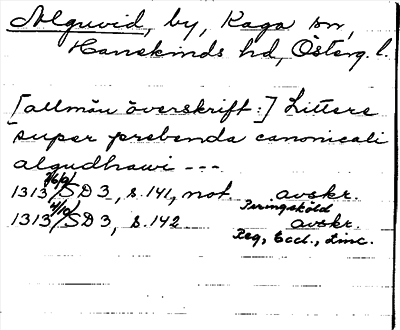 Alguvid, by, Kaga sn,
Hanekinds hd, Österg. l.
[allmän överskrift:] Littere
super prebenda canonicali
algudhawi ---
1313 SD 3, s. 141, not. avskr.
Peringsköld
1313 SD 3, s. 142 avskr.
Reg. Eccl., Linc.